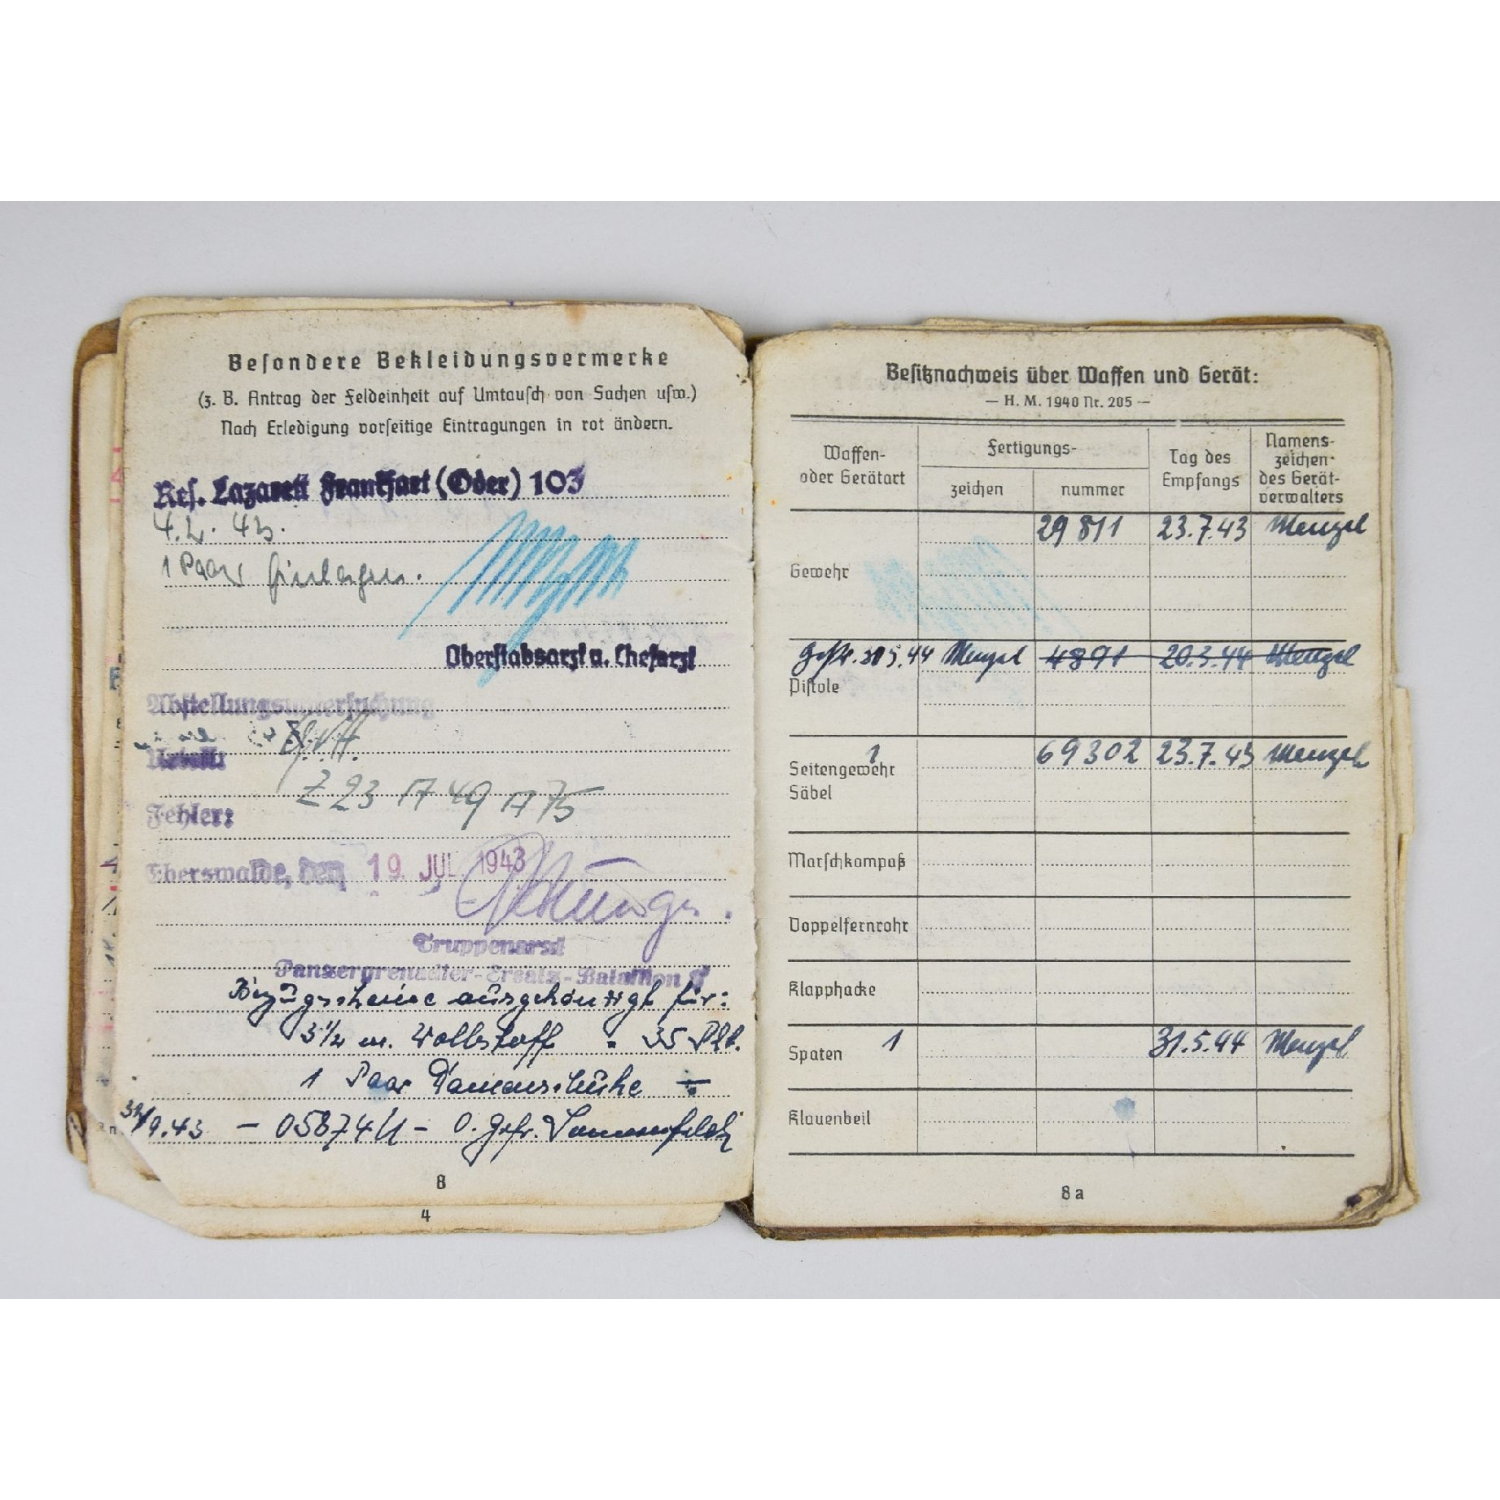 Besondere Bekleidungsvermerke
(z. B. Antrag der Feldeinheit auf Umtausch von Sachen usw.)
Nach Erledigung vorseitige Eintragungen in rot ändern.
Res. Lazarett Frankfurt (Oder) 103
4.2. 43.
1 Paar Einlagen.
Oberstabsarzt u. Chefarzt
Abstellungsuntersuchung
Urteil:
Z 23 17 49 17 75
Fehler:
Eberswalde, den 19. JUL 1943
Truppenarzt
Panzergrenadier-Ersatz-Bataillon
Bezugscheine ausgehändigt für:
3 1/2 m. Wollstoff
35 Pkt.
1 Paar Damenschuhe
9.43 - 05874/U - O. Gefr.
8
4
Besitznachweis über Waffen und Gerät:
— H. M. 1940 Nr. 205 —
Waffen- oder Gerätart
Fertigungs-
zeichen
nummer
Tag des Empfangs
Namens-zeichen des Gerät-verwalters
29811 23.7.43 Menzel
Gewehr
5.44 Menzel 4891 20.3.44 Menzel
Pistole
1 69302 23.7.43 Menzel
Seitengewehr
Säbel
Marschkompaß
Doppelfernrohr
Klapphacke
Spaten 1 31.5.44 Menzel
Klauenbeil
8a